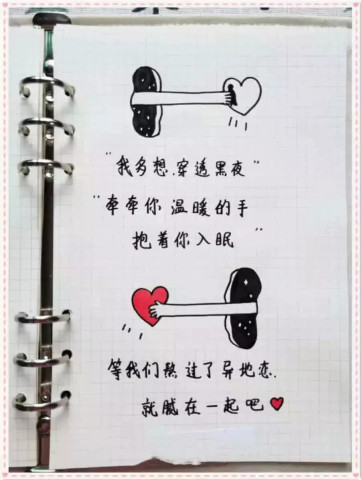 "我多想穿透黑夜"
"牵牵你温暖的手
抱着你入眠"
等我们熬过了异地恋.
就腻在一起吧